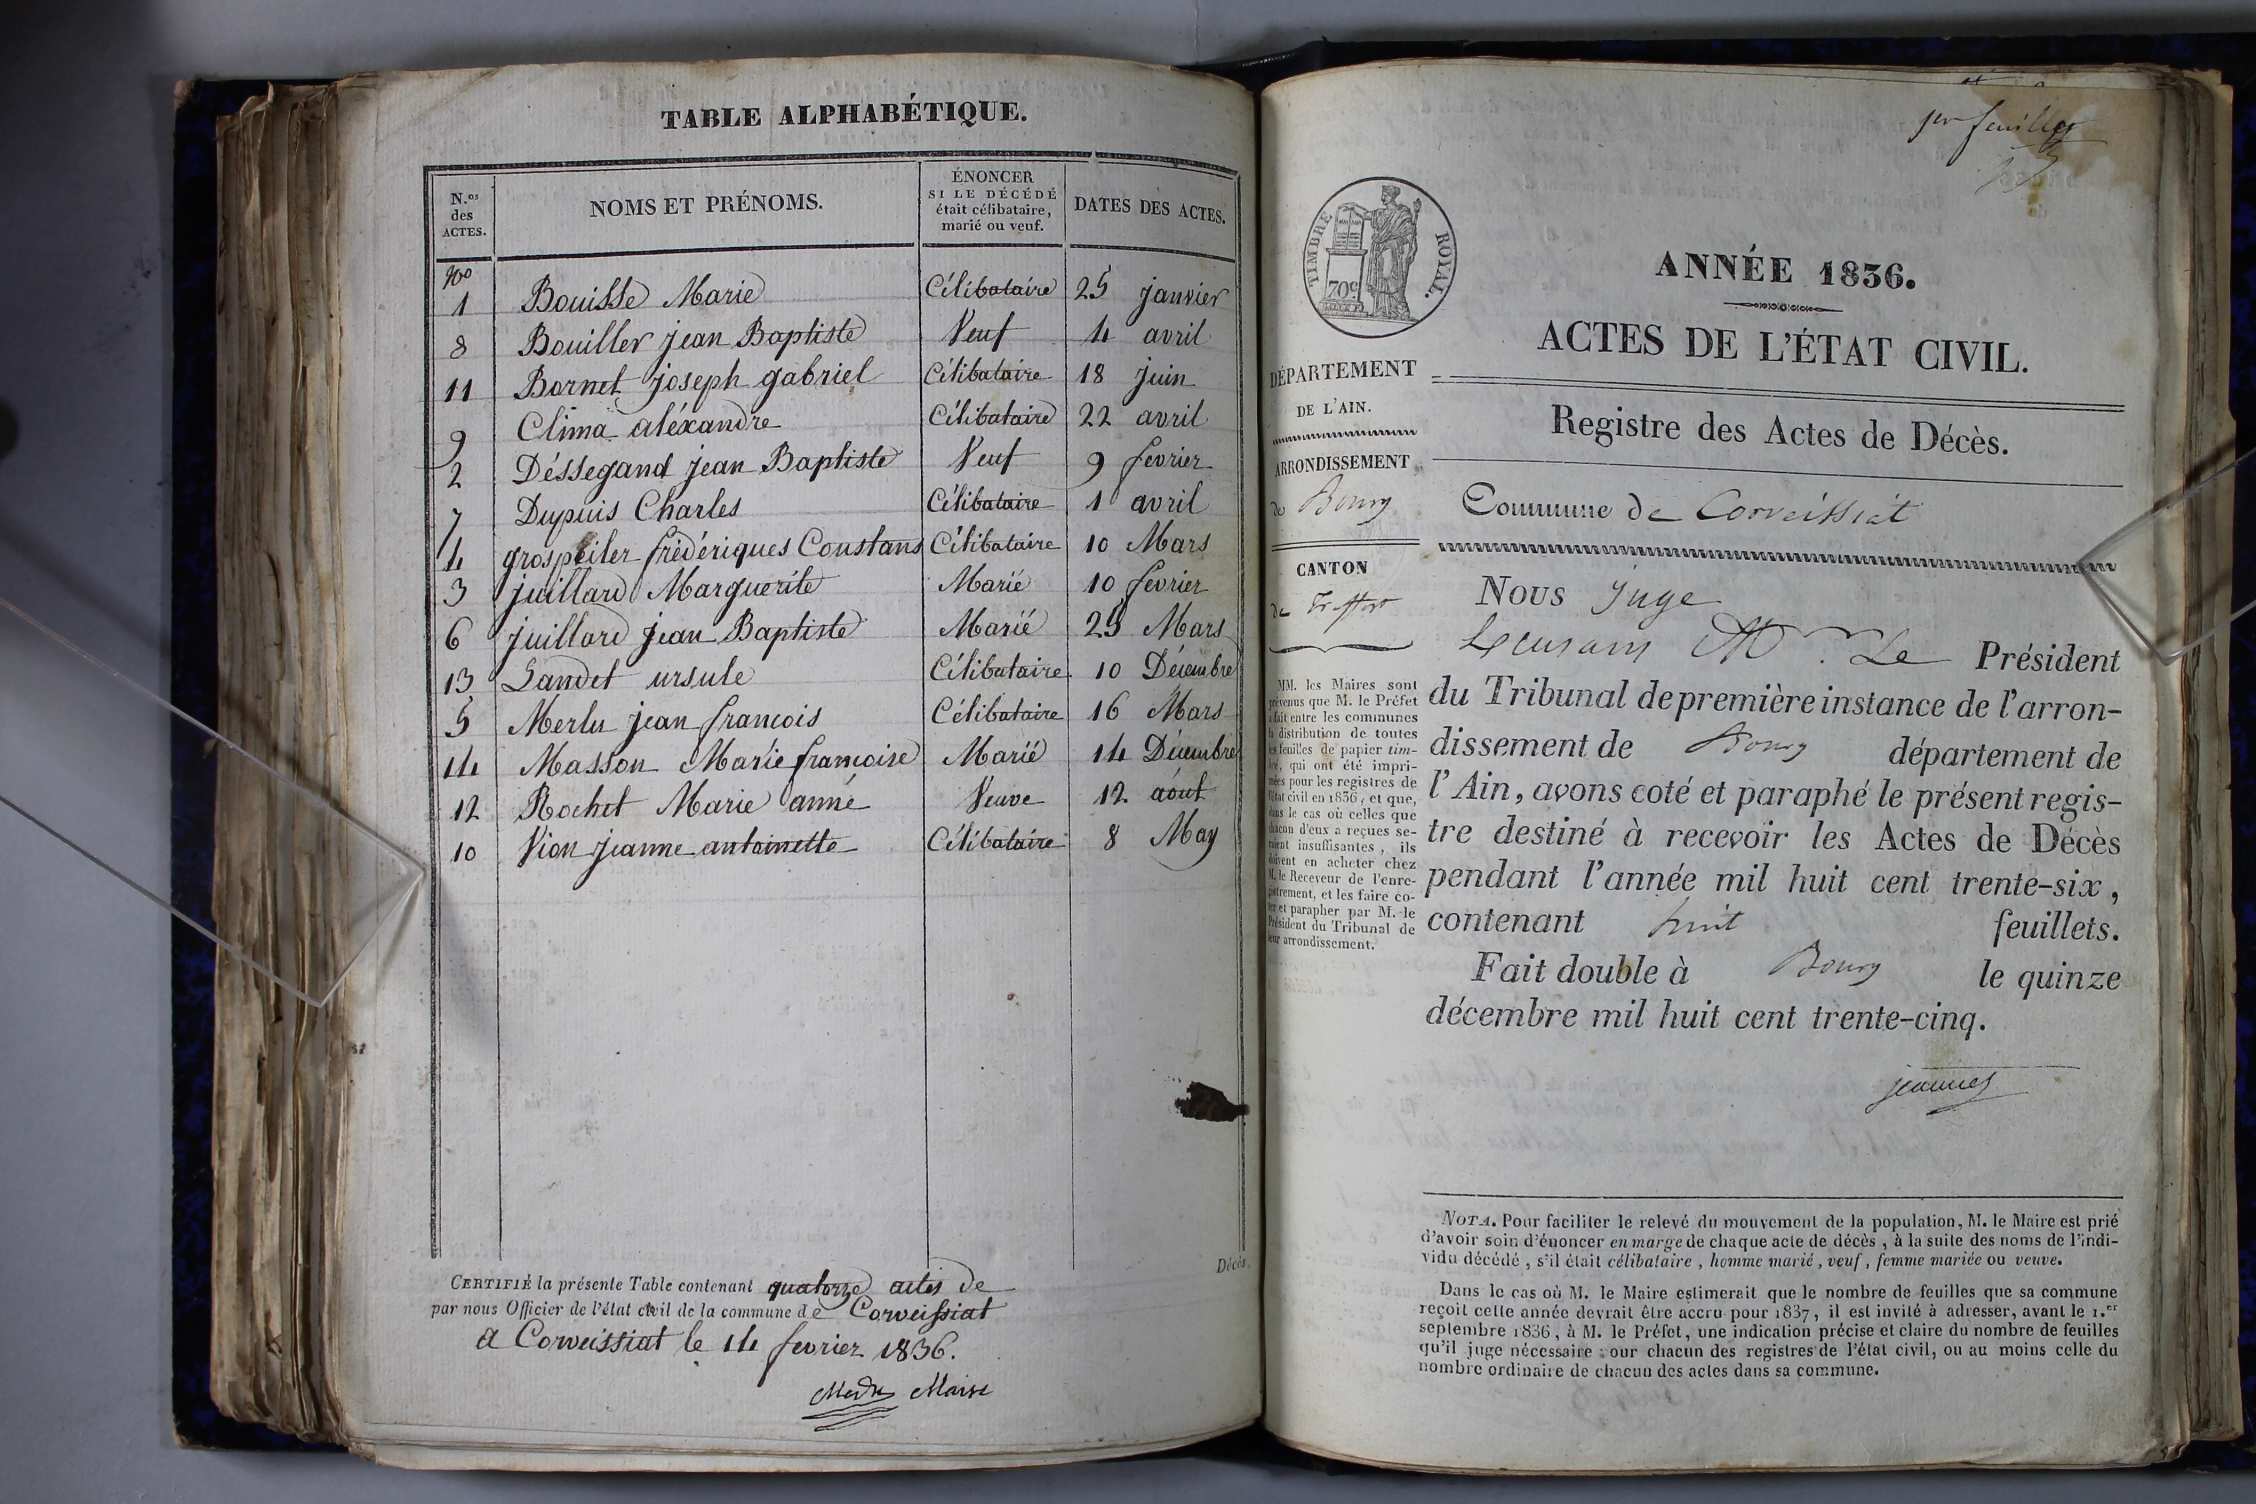 TABLE ALPHABÉTIQUE.
N.os des ACTES. NOMS ET PRÉNOMS. ÉNONCER SI LE DÉCÉDÉ était célibataire, marié ou veuf. DATES DES ACTES.
1 Bouisse Marie Célibataire 25 janvier
8 Bouiller jean Baptiste Veuf 4 avril
11 Bornet joseph gabriel Célibataire 18 juin
9 Clima aléxandre Célibataire 22 avril
2 Déssegand jean Baptiste Veuf 9 fevrier
7 Dupuis Charles Célibataire 1 avril
4 grospeiler frédériques Constans Célibataire 10 Mars
3 juillard Marguerite Marié 10 fevrier
6 juillard jean Baptiste Marié 25 Mars
13 Landet ursule Célibataire 10 Décembre
5 Merlu jean francois Célibataire 16 Mars
14 Masson Marie francoise Marié 14 Décembre
12 Rochet Marie anné Veuve 12 aóut
10 Vion jeanne antoinette Célibataire 8 May
Décès.
CERTIFIÉ la présente Table contenant quatorze actes de
par nous Officier de l'état civil de la commune de Corveissiat
a Corveissiat le 14 fevrier 1836.
Maire
1er feuillet
TIMBRE ROYAL.
70c
ANNÉE 1836.
ACTES DE L'ÉTAT CIVIL.
DÉPARTEMENT
DE L'AIN.
ARRONDISSEMENT
de Bourg
CANTON
de Treffort
MM. les Maires sont
prévenus que M. le Préfet
a fait entre les communes
la distribution de toutes
les feuilles de papier tim-
bré, qui ont été impri-
mées pour les registres de
l'état civil en 1836, et que,
dans le cas où celles que
chacun d'eux a reçues se-
raient insuffisantes, ils
doivent en acheter chez
M. le Receveur de l'enre-
gistrement, et les faire co-
ter et parapher par M. le
Président du Tribunal de
leur arrondissement.
Registre des Actes de Décès.
Commune de Corveissiat
Nous juge
Le Président
du Tribunal de première instance de l'arron-
dissement de Bourg département de
l'Ain, avons coté et paraphé le présent regis-
tre destiné à recevoir les Actes de Décès
pendant l'année mil huit cent trente-six,
contenant huit feuillets.
Fait double à Bourg le quinze
décembre mil huit cent trente-cinq.
NOTA. Pour faciliter le relevé du mouvement de la population, M. le Maire est prié
d'avoir soin d'énoncer en marge de chaque acte de décès, à la suite des noms de l'indi-
vidu décédé, s'il était célibataire, homme marié, veuf, femme mariée ou veuve.
Dans le cas où M. le Maire estimerait que le nombre de feuilles que sa commune
reçoit cette année devrait être accru pour 1837, il est invité à adresser, avant le 1.er
septembre 1836, à M. le Préfet, une indication précise et claire du nombre de feuilles
qu'il juge nécessaire pour chacun des registres de l'état civil, ou au moins celle du
nombre ordinaire de chacun des actes dans sa commune.